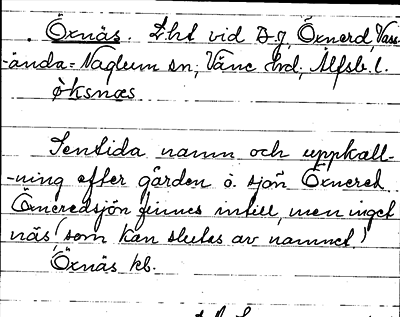 . Öxnäs. Lht vid D-g, Öxnerd, Vass-
-ända=Naglum sn, Väne hrd, Älfsb. l.
öksnæs
Sentida namn och uppkall-
-ning efter gården o. sjön Öxnered.
Öxneredsjön finnes intill, men inget
näs (som kan slutas av namnet!)
Öxnäs kb.